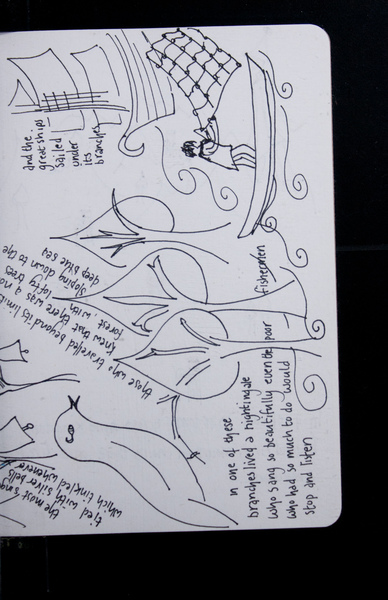 the most sing
tied with silver bells
which tinkled whenever
those who travelled beyond its limit
knew that there was a no
forest, with lofty trees
sloping down to the
deep blue sea
and the
great ships
sailed
under
its
branches
in one of these
branches lived a nightingale
who sang so beautifully even the poor fishermen
who had so much to do would
stop and listen